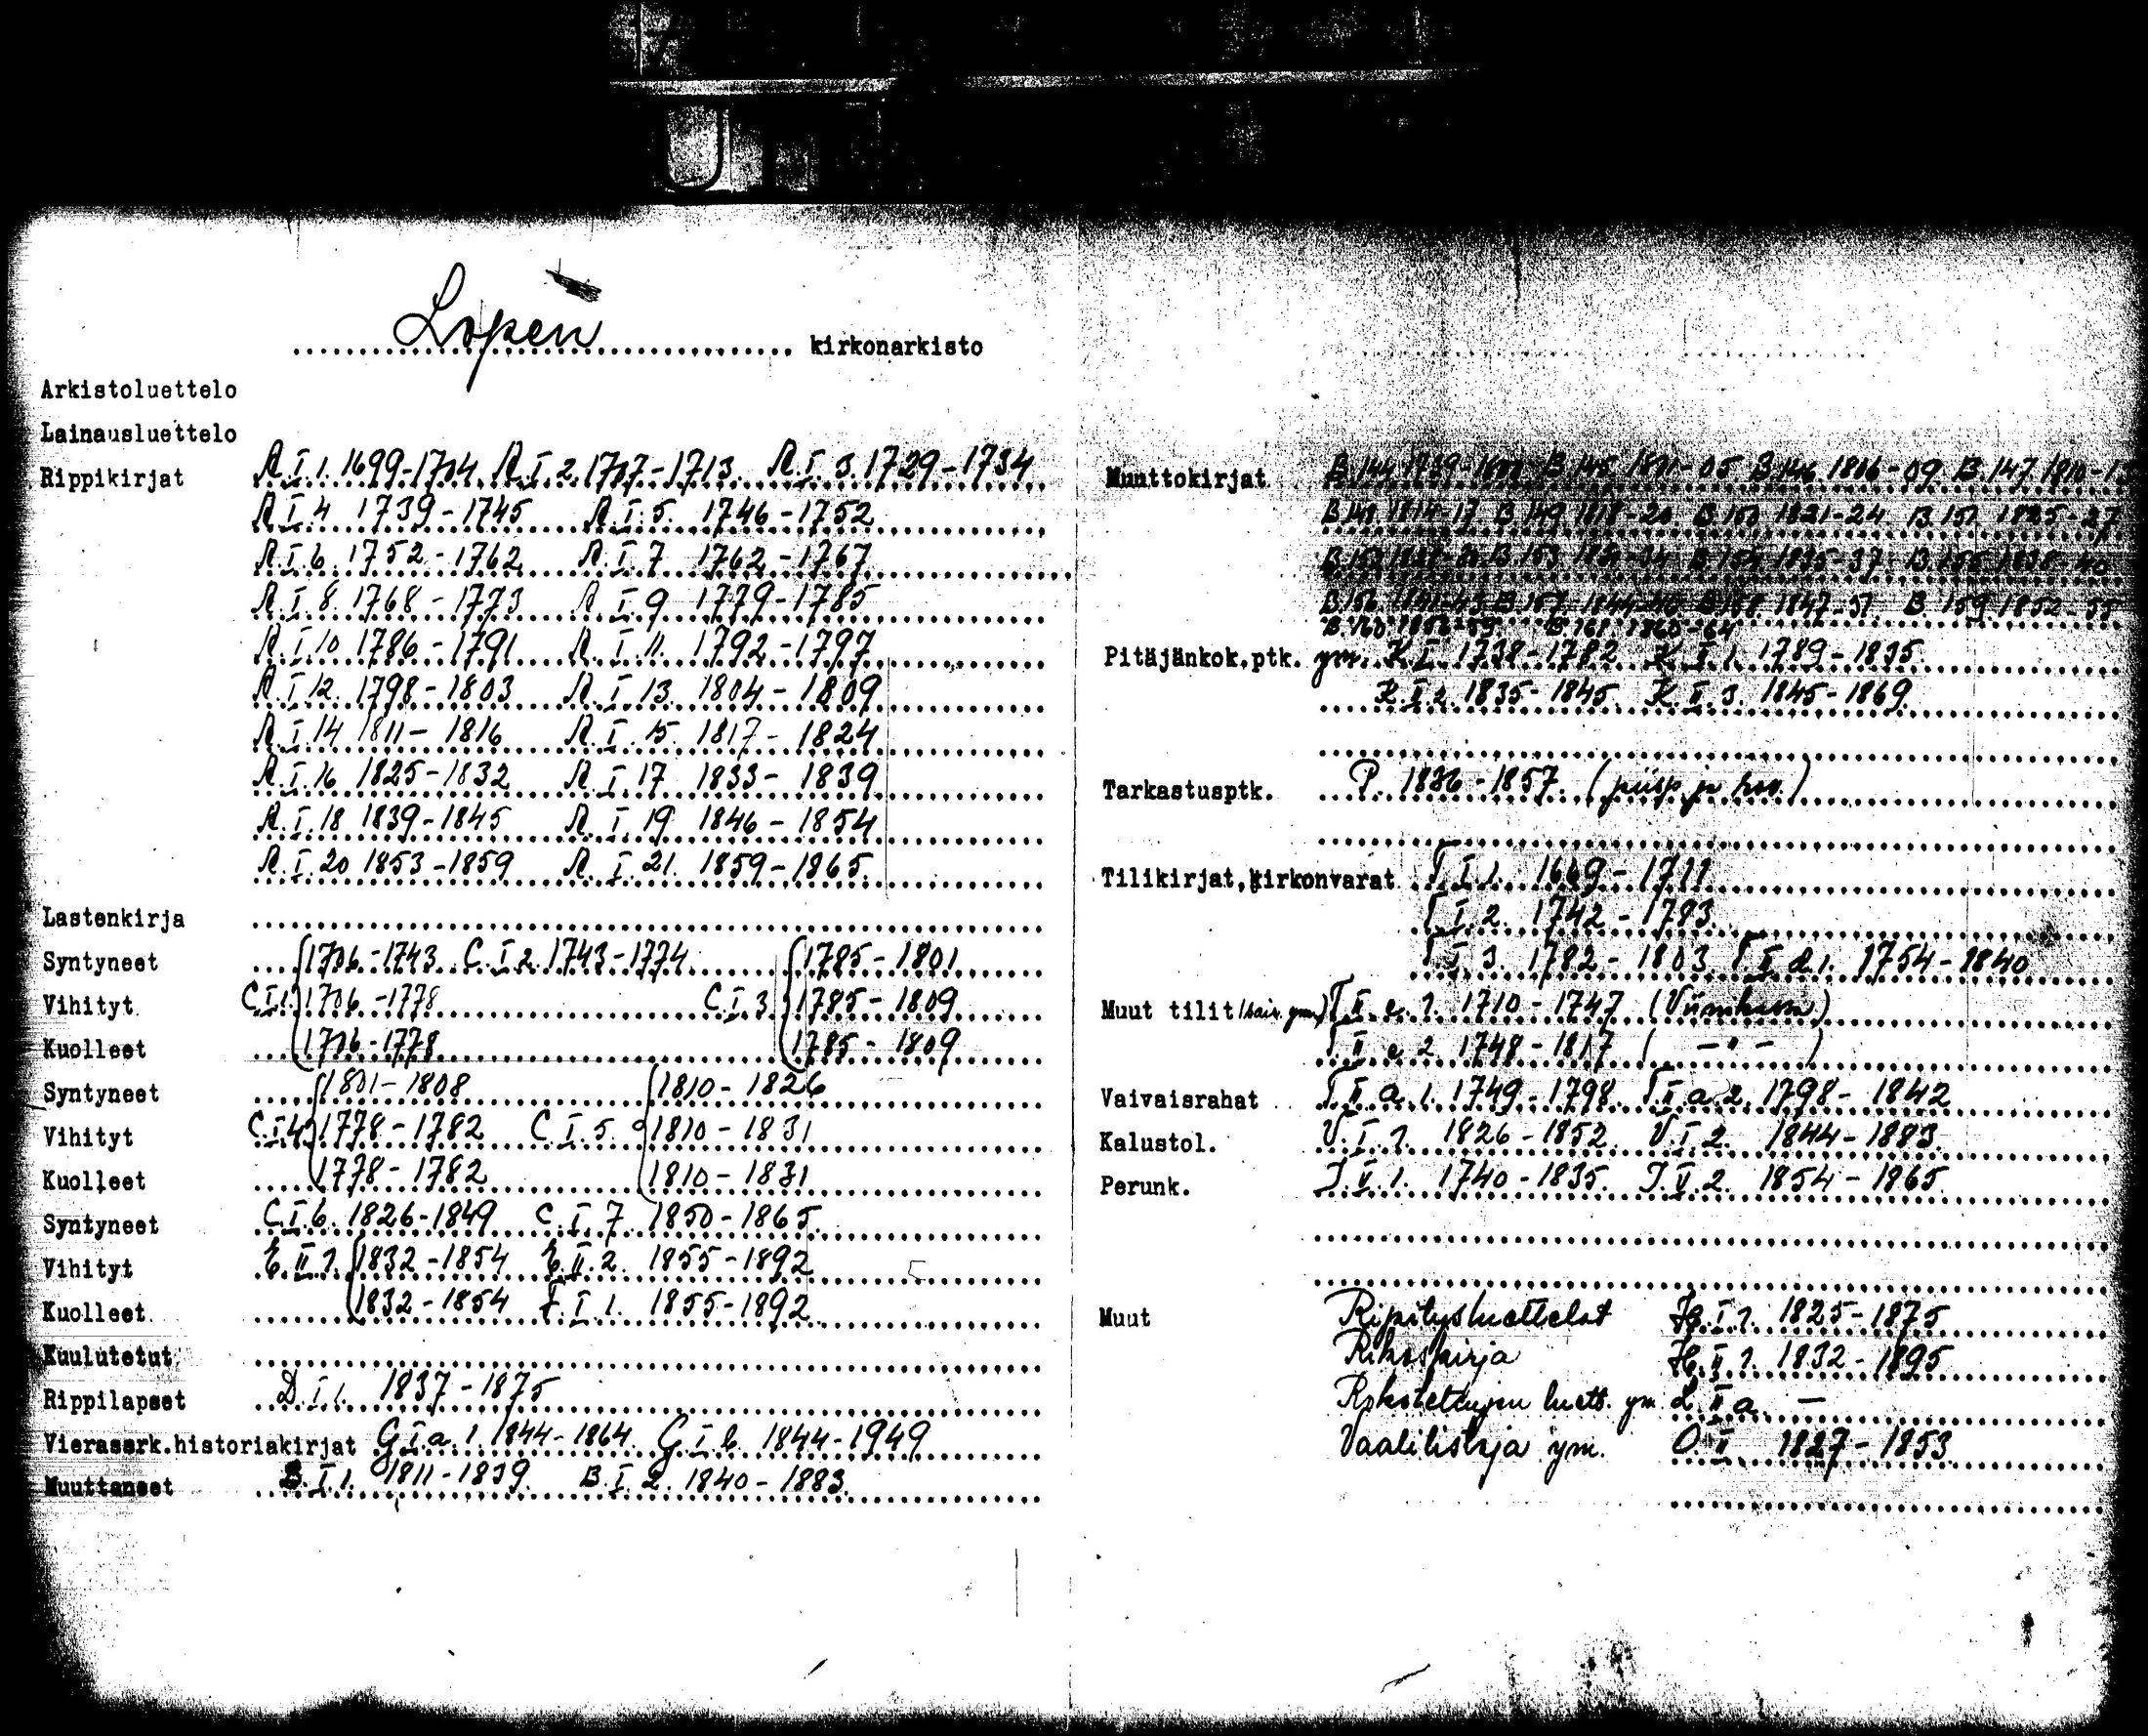 Lopen kirkonarkisto
Arkistoluettelo
Lainausluettelo
Rippikirjat A.I.1. 1699-1704 A.I.2. 1707-1713. A.I.3. 1729-1734
A.I.4 1739-1745 A.I.5. 1746-1752
A.I.6. 1752-1762 A.I.7 1762-1767
A.I.8. 1768-1773 A.I.9 1779-1785
A.I.10 1786-1791 A.I.11. 1792-1797
A.I.12. 1798-1803 A.I.13. 1804-1809
A.I.14 1811-1816 A.I.15. 1817-1824
A.I.16 1825-1832 A.I.17 1833-1839
A.I.18 1839-1845 A.I.19 1846-1854
A.I.20 1853-1859 A.I.21. 1859-1865
Lastenkirja
Syntyneet 1706-1743 C.I.2. 1743-1774 1785-1801
Vihityt C.I.1. 1706-1778 C.I.3. 1785-1809
Kuolleet 1706-1778 1785-1809
Syntyneet 1801-1808 1810-1826
Vihityt C.I.4. 1778-1782 C.I.5. 1810-1831
Kuolleet 1778-1782 1810-1831
Syntyneet C.I.6. 1826-1849 C.I.7 1850-1865
Vihityt E.II.1. 1832-1854 E.II.2. 1855-1892
Kuolleet 1832-1854 F.I.1. 1855-1892
Kuulutetut
Rippilapset D.I.1. 1837-1875
Vierassrk.historiakirjat G.I.a.1 1844-1864. G.I.b. 1844-1949
Muuttaneet B.I.1. 1811-1839. B.I.2. 1840-1883.
Muuttokirjat B.145 B.146 -09 B.147 1810-
B.149 1818-20 1821-24 1825-27
B.153 1835-37
B.156 1841-43 B.157 B.158 1847-51 B.159 1852-55
B.161 1860-64
Pitäjänkok.ptk. ym. K.I. 1738-1782 K.II.1. 1789-1835
K.II.2. 1835-1845 K.II.3. 1845-1869.
Tarkastusptk. P. 1836-1857. (piisp. ja rov.)
Tilikirjat,kirkonvarat T.I.1. 1669-1711
T.I.2. 1742-1783.
T.I.3. 1782-1803 T.II.d.1. 1754-1840
Muut tilit T.II.e.1. 1710-1747
T.II.e.2. 1748-1817 ( -"- )
Vaivaisrahat T.II.a.1. 1749-1798 T.II.a.2. 1798-1842
Kalustol. V.I.1. 1826-1852. V.I.2. 1844-1883.
Perunk. J.V.1. 1740-1835. J.V.2. 1854-1865
Muut Ripitysluettelot H.I.1. 1825-1875
Rikoskirja H.II.1. 1832-1895
Rokotettujen luett. ym. L.II.a. -
Vaalilistoja ym. O.I. 1827-1853